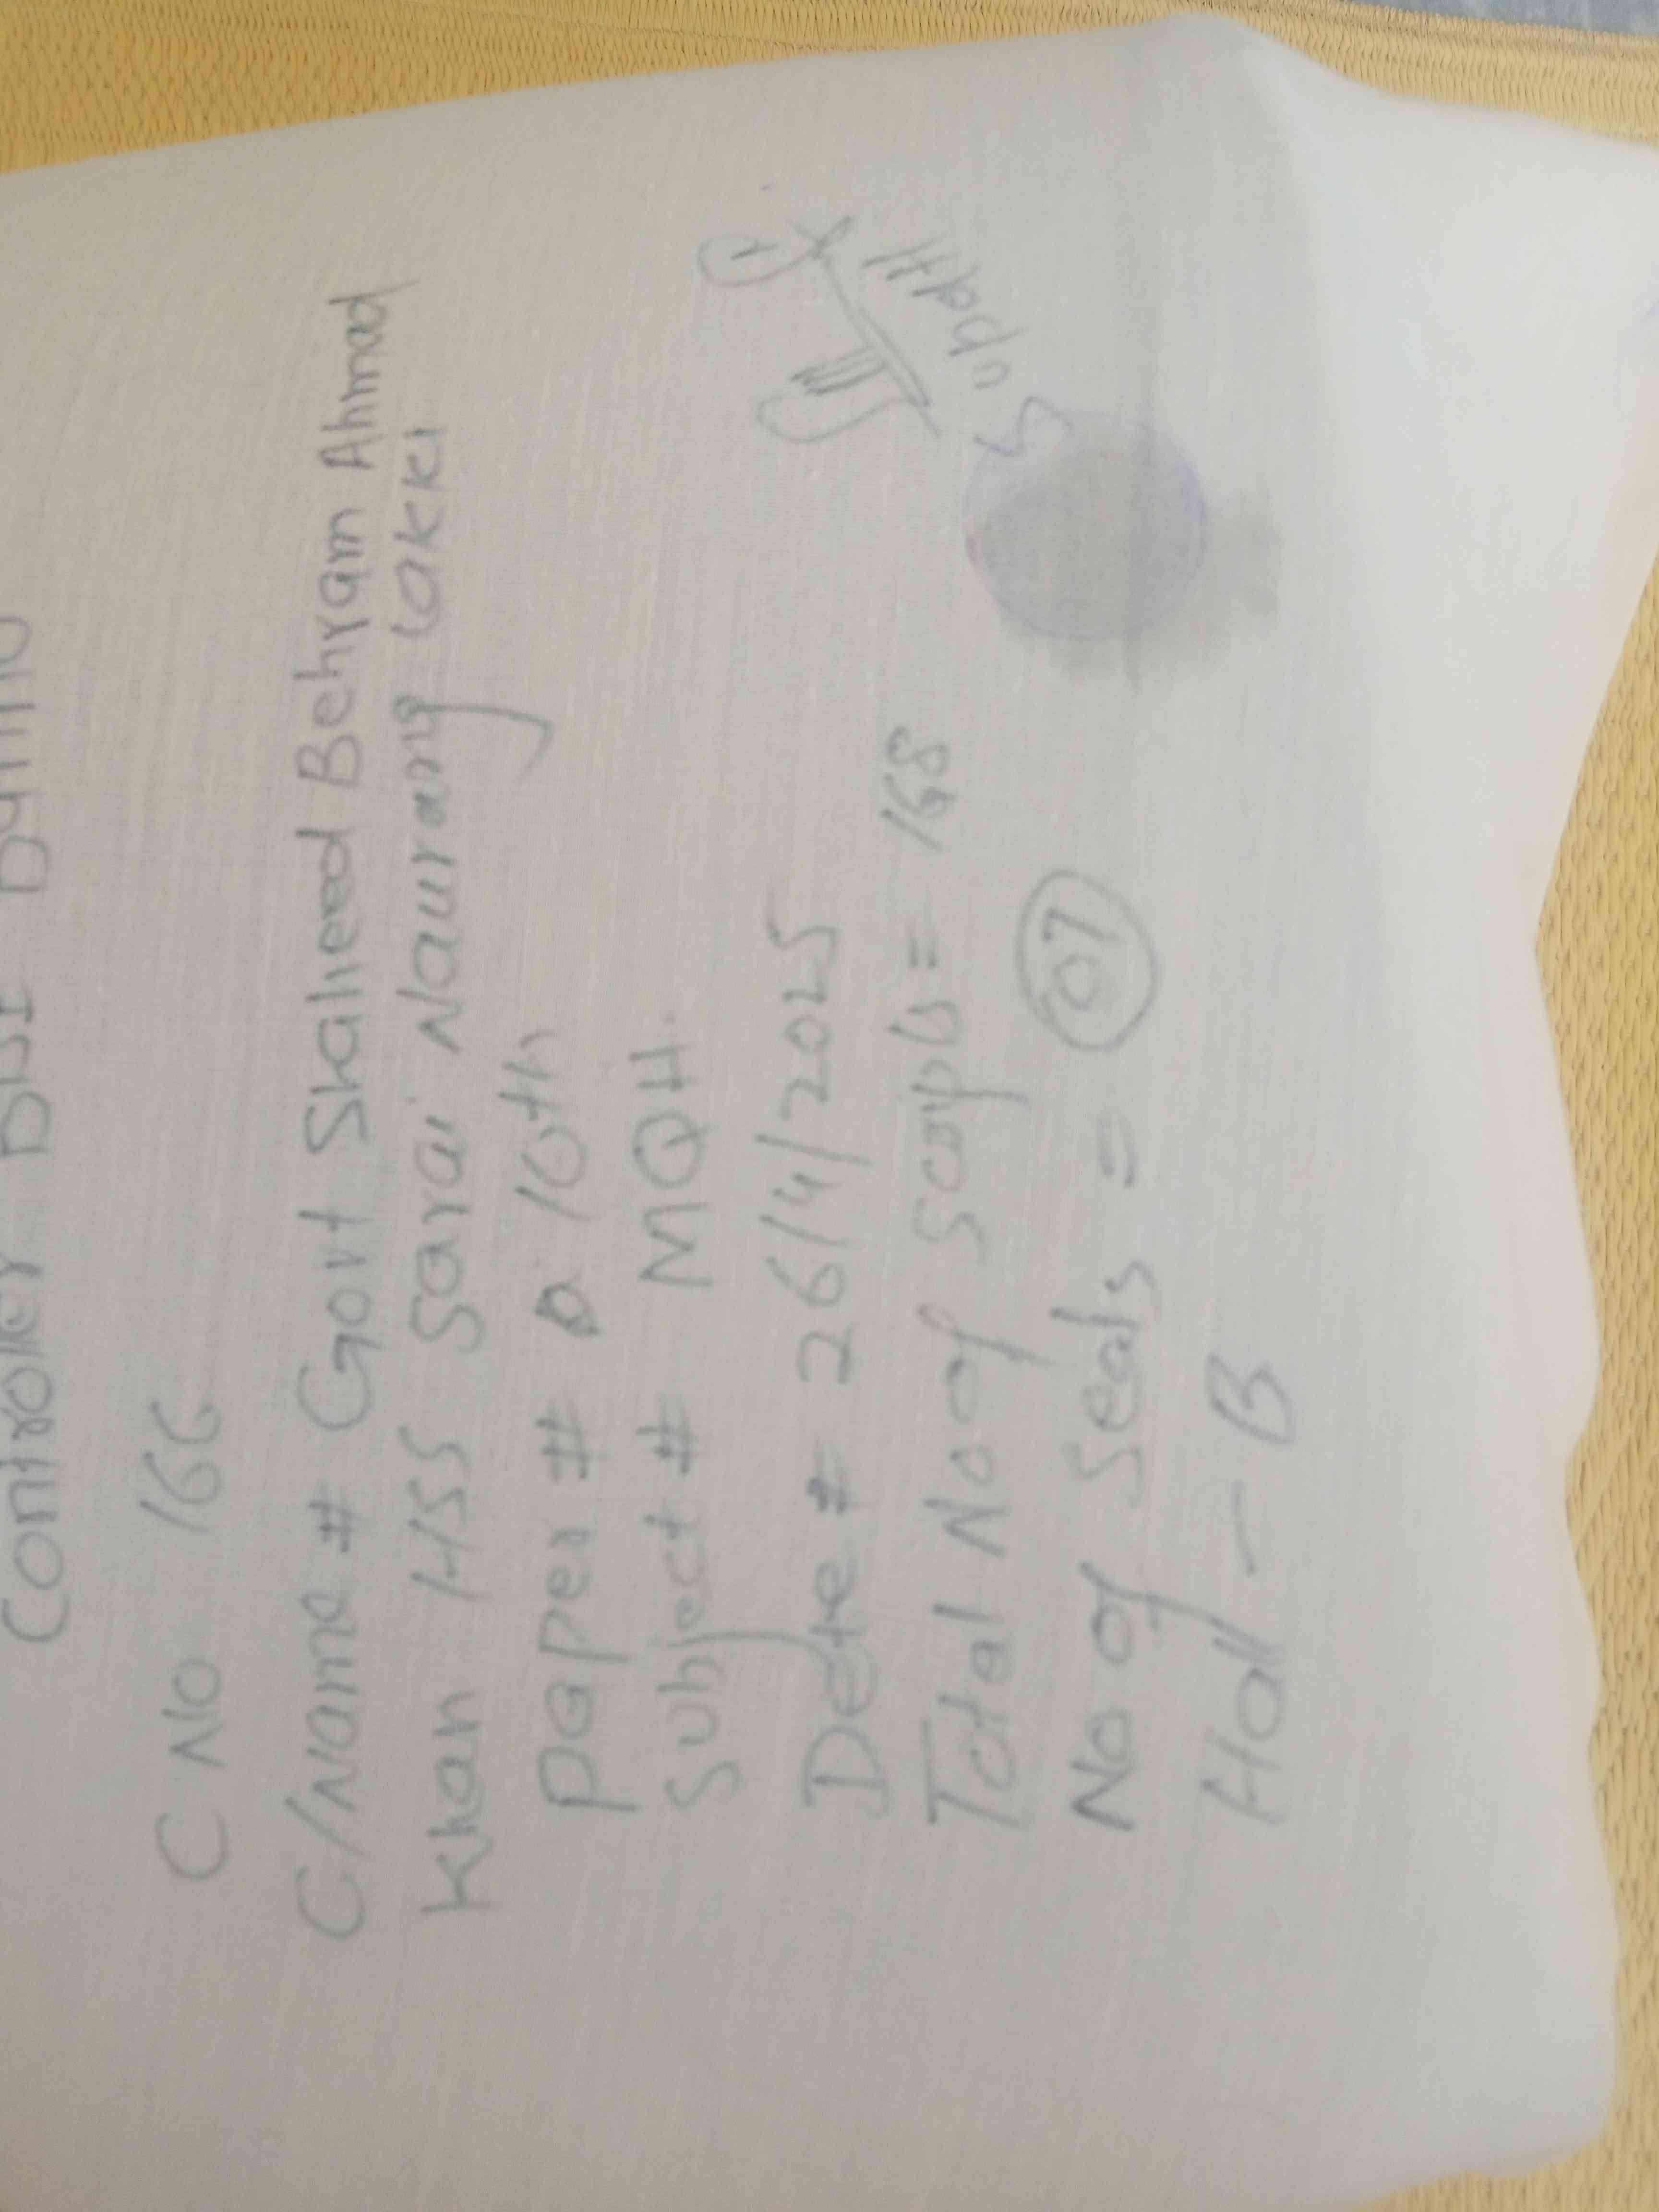 Controller BISE Bannu
C No 166
C/Name # Govt Shaheed Behram Ahmad
Khan HSS Sarai Naurang Lakki
Paper # 10th
Subject # MQH.
Date # 26/4/2025
Total No of Scripts = 168
No of Seals = 07
Hall - B